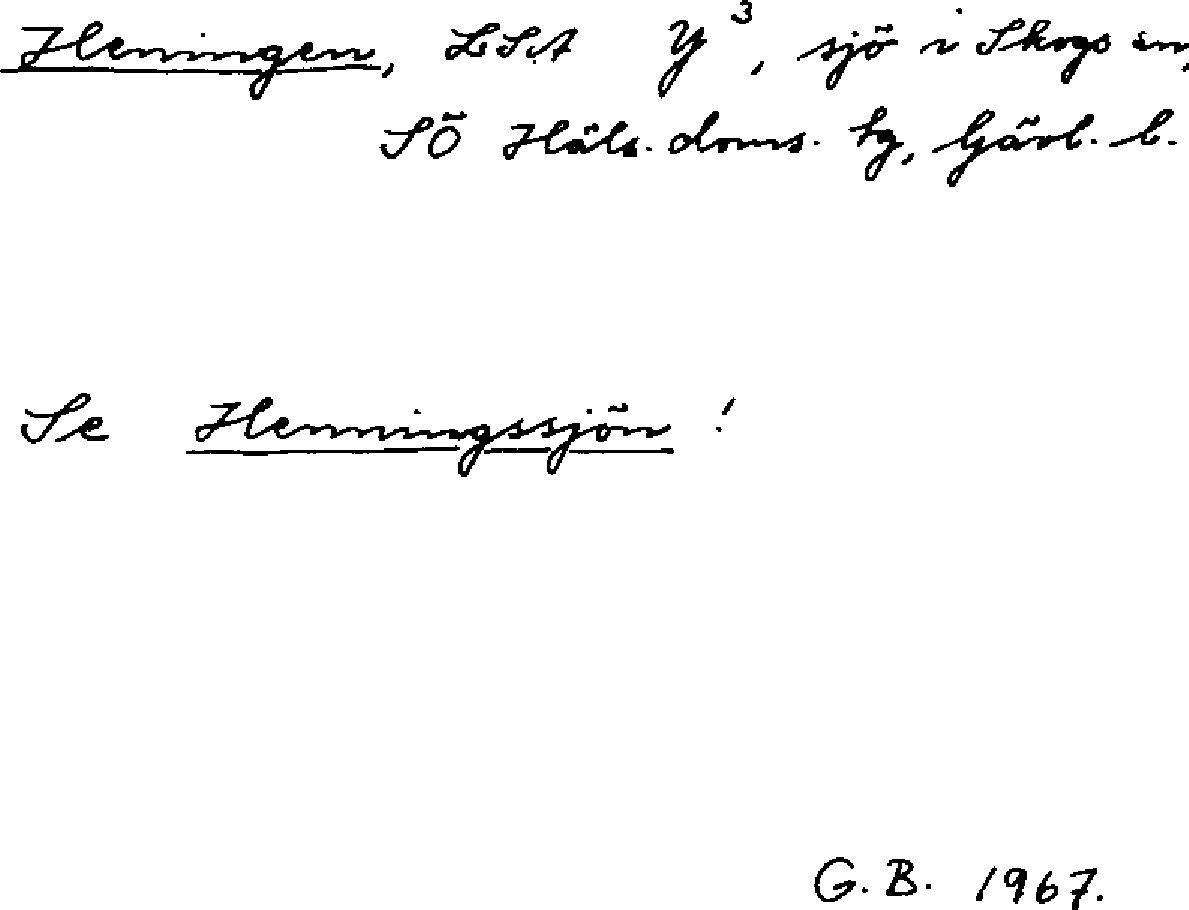 Heningen, LSA Y³, sjö i Skogs sn,
SÖ Häls. doms. tg, Gävl. l.
Se Henningssjön !
G. B. 1967.